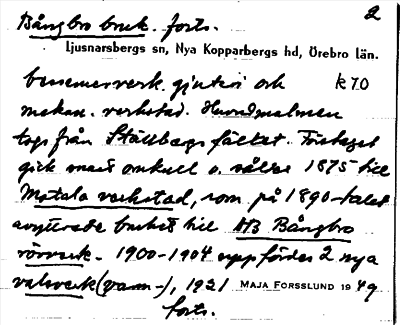 Bångbro bruk. forts. 2
Ljusnarsbergs sn, Nya Kopparbergs hd, Örebro län.
bessemerverk. gjuteri och k 70
mekan. verkstad. Huvudmalmen
togs från Ställbergsfältet. Företaget
gick med omkull o. såldes 1875 till
Motala verkstad, som på 1890-talet
avyttrade bruket till AB Bångbro
rörverk. 1900-1904 uppfördes 2 nya
valsverk (varm-), 1921 MAJA FORSSLUND 1949
forts.